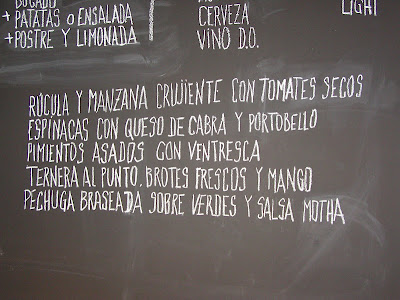 BOCADO
+ PATATAS o ENSALADA
+ POSTRE Y LIMONADA
CERVEZA
VINO D.O.
LIGHT
RÚCULA Y MANZANA CRUJIENTE CON TOMATES SECOS
ESPINACAS CON QUESO DE CABRA Y PORTOBELLO
PIMIENTOS ASADOS CON VENTRESCA
TERNERA AL PUNTO, BROTES FRESCOS Y MANGO
PECHUGA BRASEADA SOBRE VERDES Y SALSA MOTHA